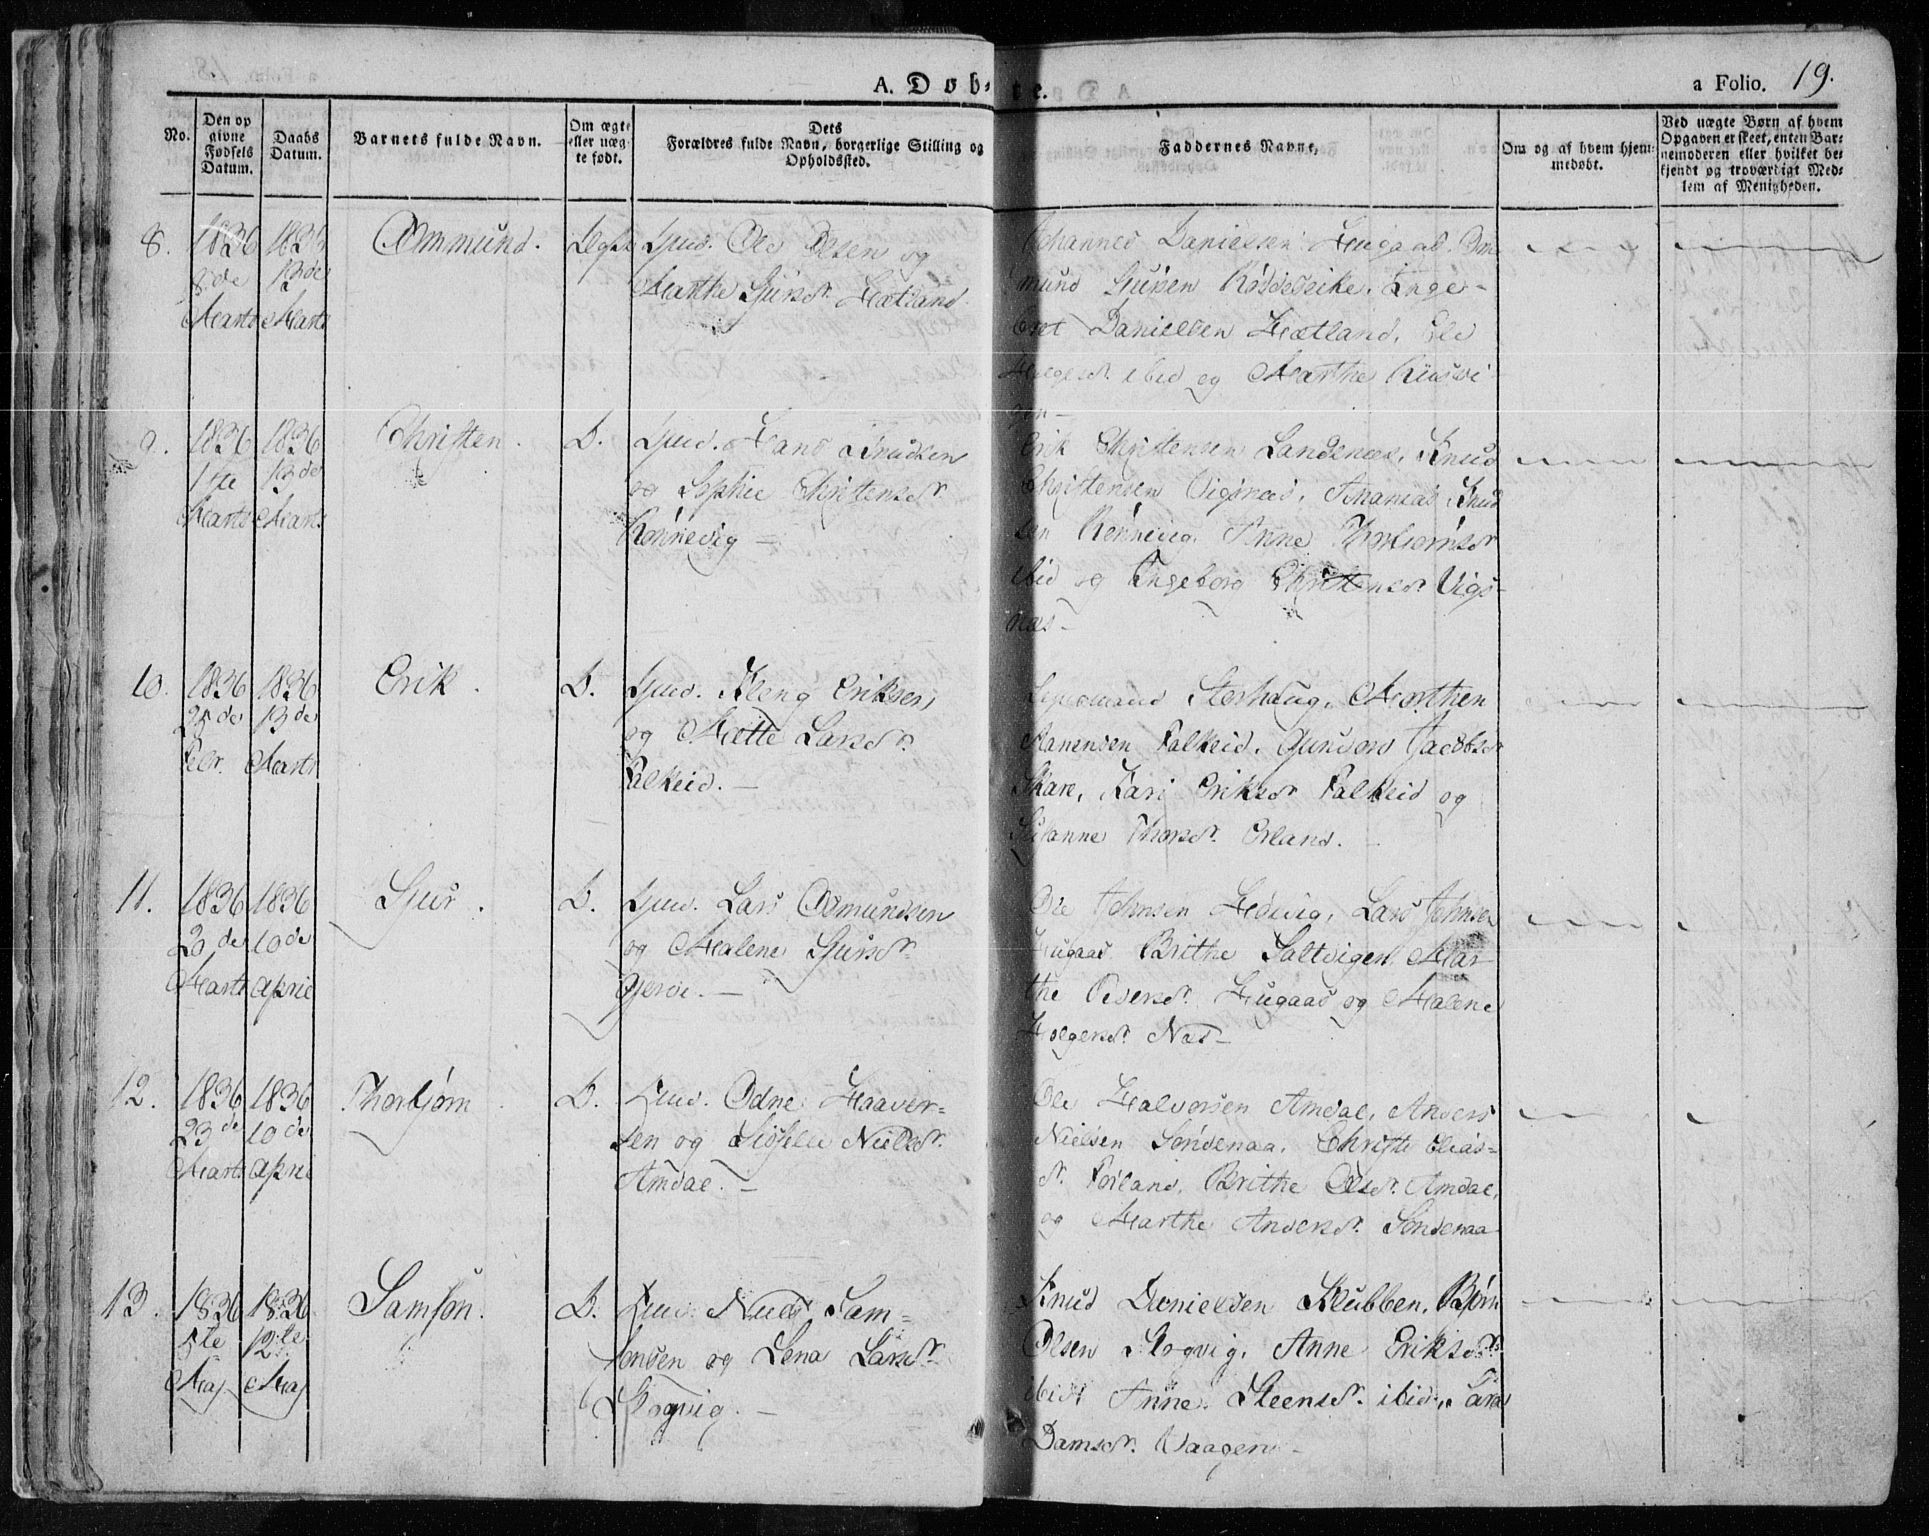 A. Døbte.
a Folio. 19.
No.
Den opgivne Fødsels Datum.
Daabs Datum.
Barnets fulde Navn.
Om ægte eller uægte født.
Dets Forældres fulde Navn, borgerlige Stilling og Opholdssted.
Faddernes Navne.
Om og af hvem hjemmedøbt.
Ved uægte Børn af hvem Opgaven er skeet, enten Barnemoderen eller hvilket bekjendt og troværdigt Medlem af Menigheden.
8.
1836
8de
Marts
1836
13de
Marts
Ommund.
Ægte
Gmd. Ole Olsen og
Marthe Sjursdr. Hætland.
Johannes Danielsen Hugaas. Om-
mund Sjursen Inge-
bret Danielsen Hætland,
ibid og Marthe
9.
1836
1te
Marts
1836
13de
Marts
Christen.
D.
Gmd. Hans Knudsen
og Sophie Christensdr.
Rønnevig —
Erik Christensen Landsnæs, Knud
Christensen Vigsnæs, Ananias Knud
sen Rønnevig, Anne Thorbiørnsdr
ibid og Ingeborg Christensdr. Vigs-
næs —
10.
1836
25de
Febr.
1836
13de
Marts
Erik.
D.
Gmd. Kleng Eriksen
og Mætte Larsdr.
Falkeid. —
Storhaug, Morthen
Aanensen Falkeid, Gunvor Jacobsdr
Skare, Kari Eriksdr Falkeid og
Susanne Thorsdr. Erland.
11.
1836
20de
Marts
1836
10de
April
Sjur.
D.
Gmd. Lars Osmundsen
og Malene Sjursdr.
Gjerde. —
Ole Johnsen Lars Johnsen
Hugaas Brithe Saltvigen, Mar-
the Hugaas og Malene
Holgersdr. Næs —
12.
1836
23de
Marts
1836
10de
April
Thorbjørn
D.
Gmd. Odne Haaver-
sen og Sidselle Nielsdr.
Amdal. —
Ole Halvorsen Amdal, Anders
Nielsen Søndenaa, Christi Elias-
dr. Førland, Brithe Olsdr. Amdal,
og Marthe Andersdr. Søndenaa
13.
1836
5te
Maj
1836
12te
Maj
Samson.
D.
Gmd. Niels Sam-
sonsen og Lena Larsdr.
Stogvig. —
Knud Danielsen Klubben, Bjørn
Olsen Stogvig, Anne Eriksdr.
ibid Anne Steensdr. ibid,
Damsdr. Vaagen —